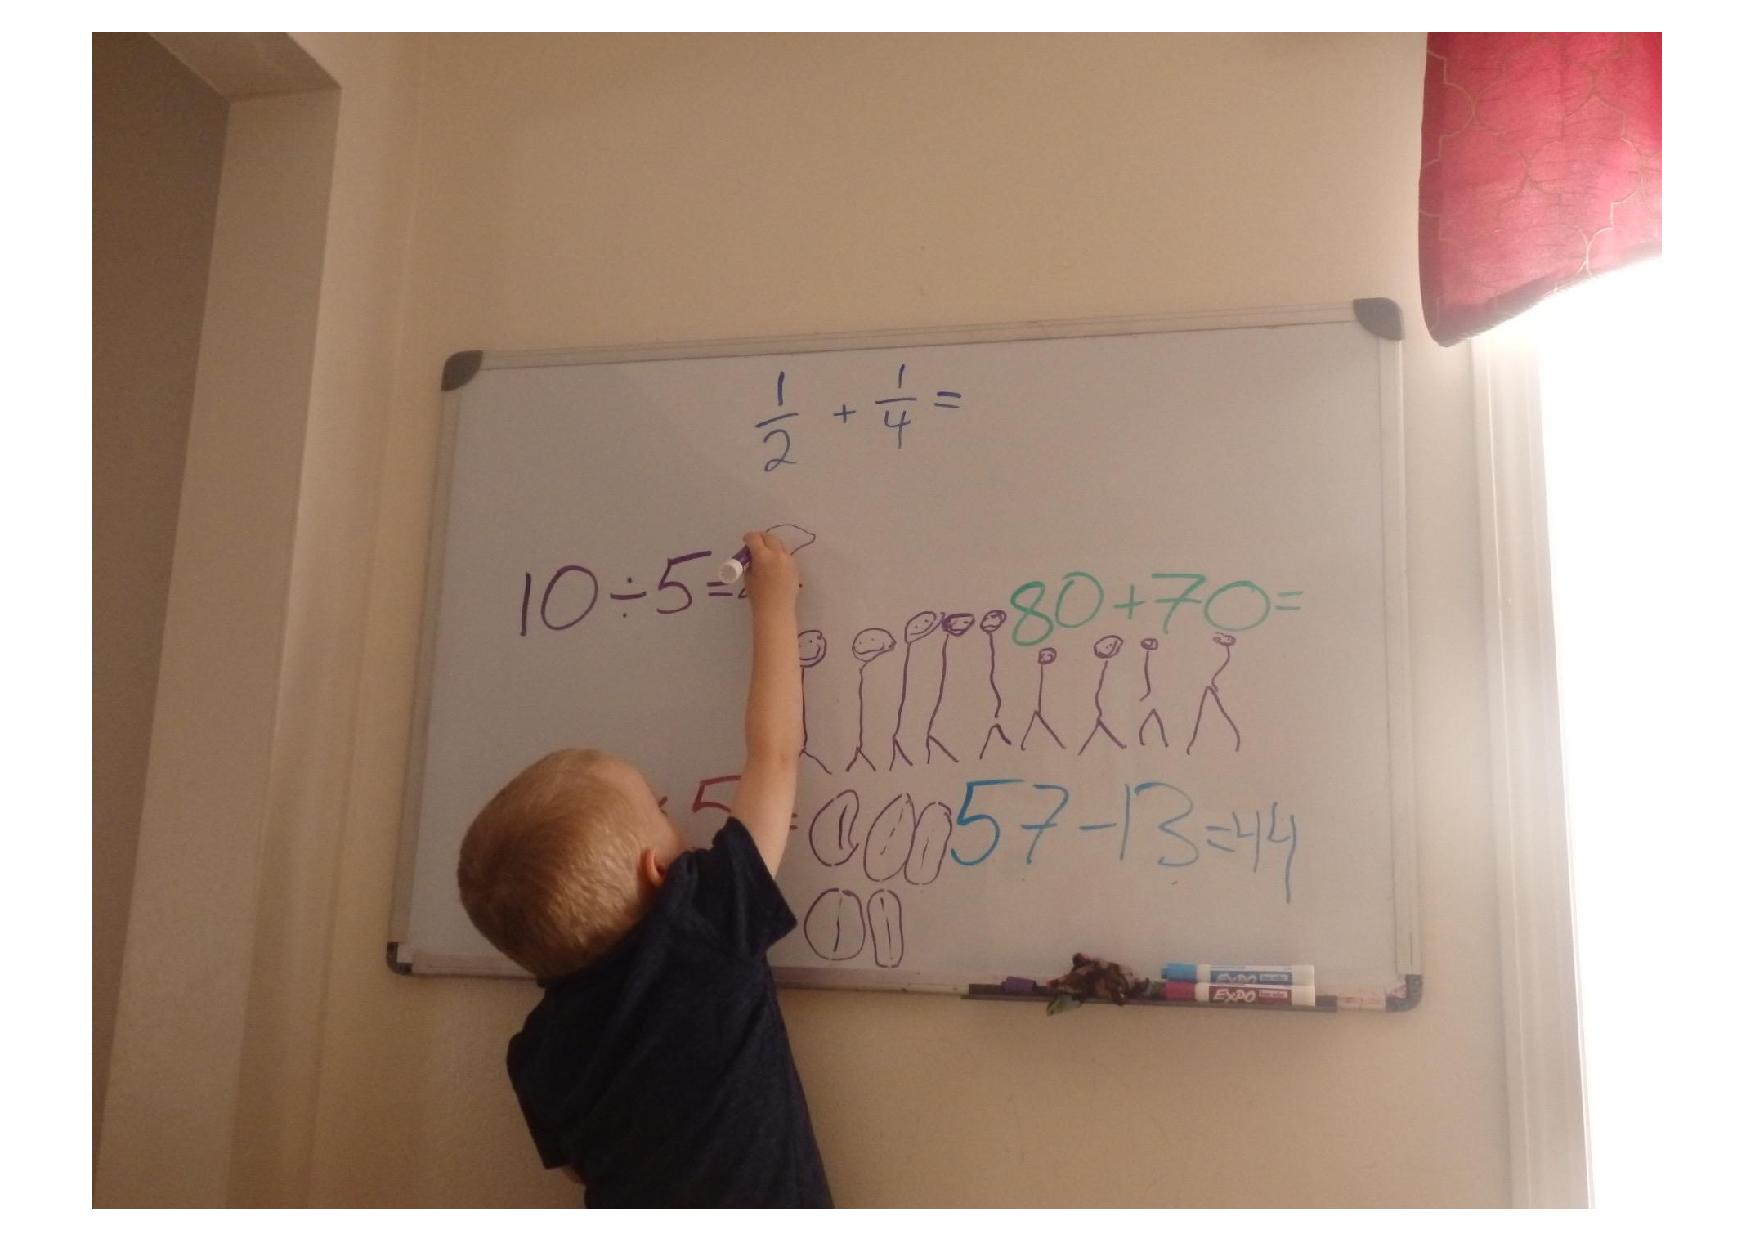 1/2 + 1/4 =
10÷5=
80+70=
5 =
57-13=44
EXPO
EXPO